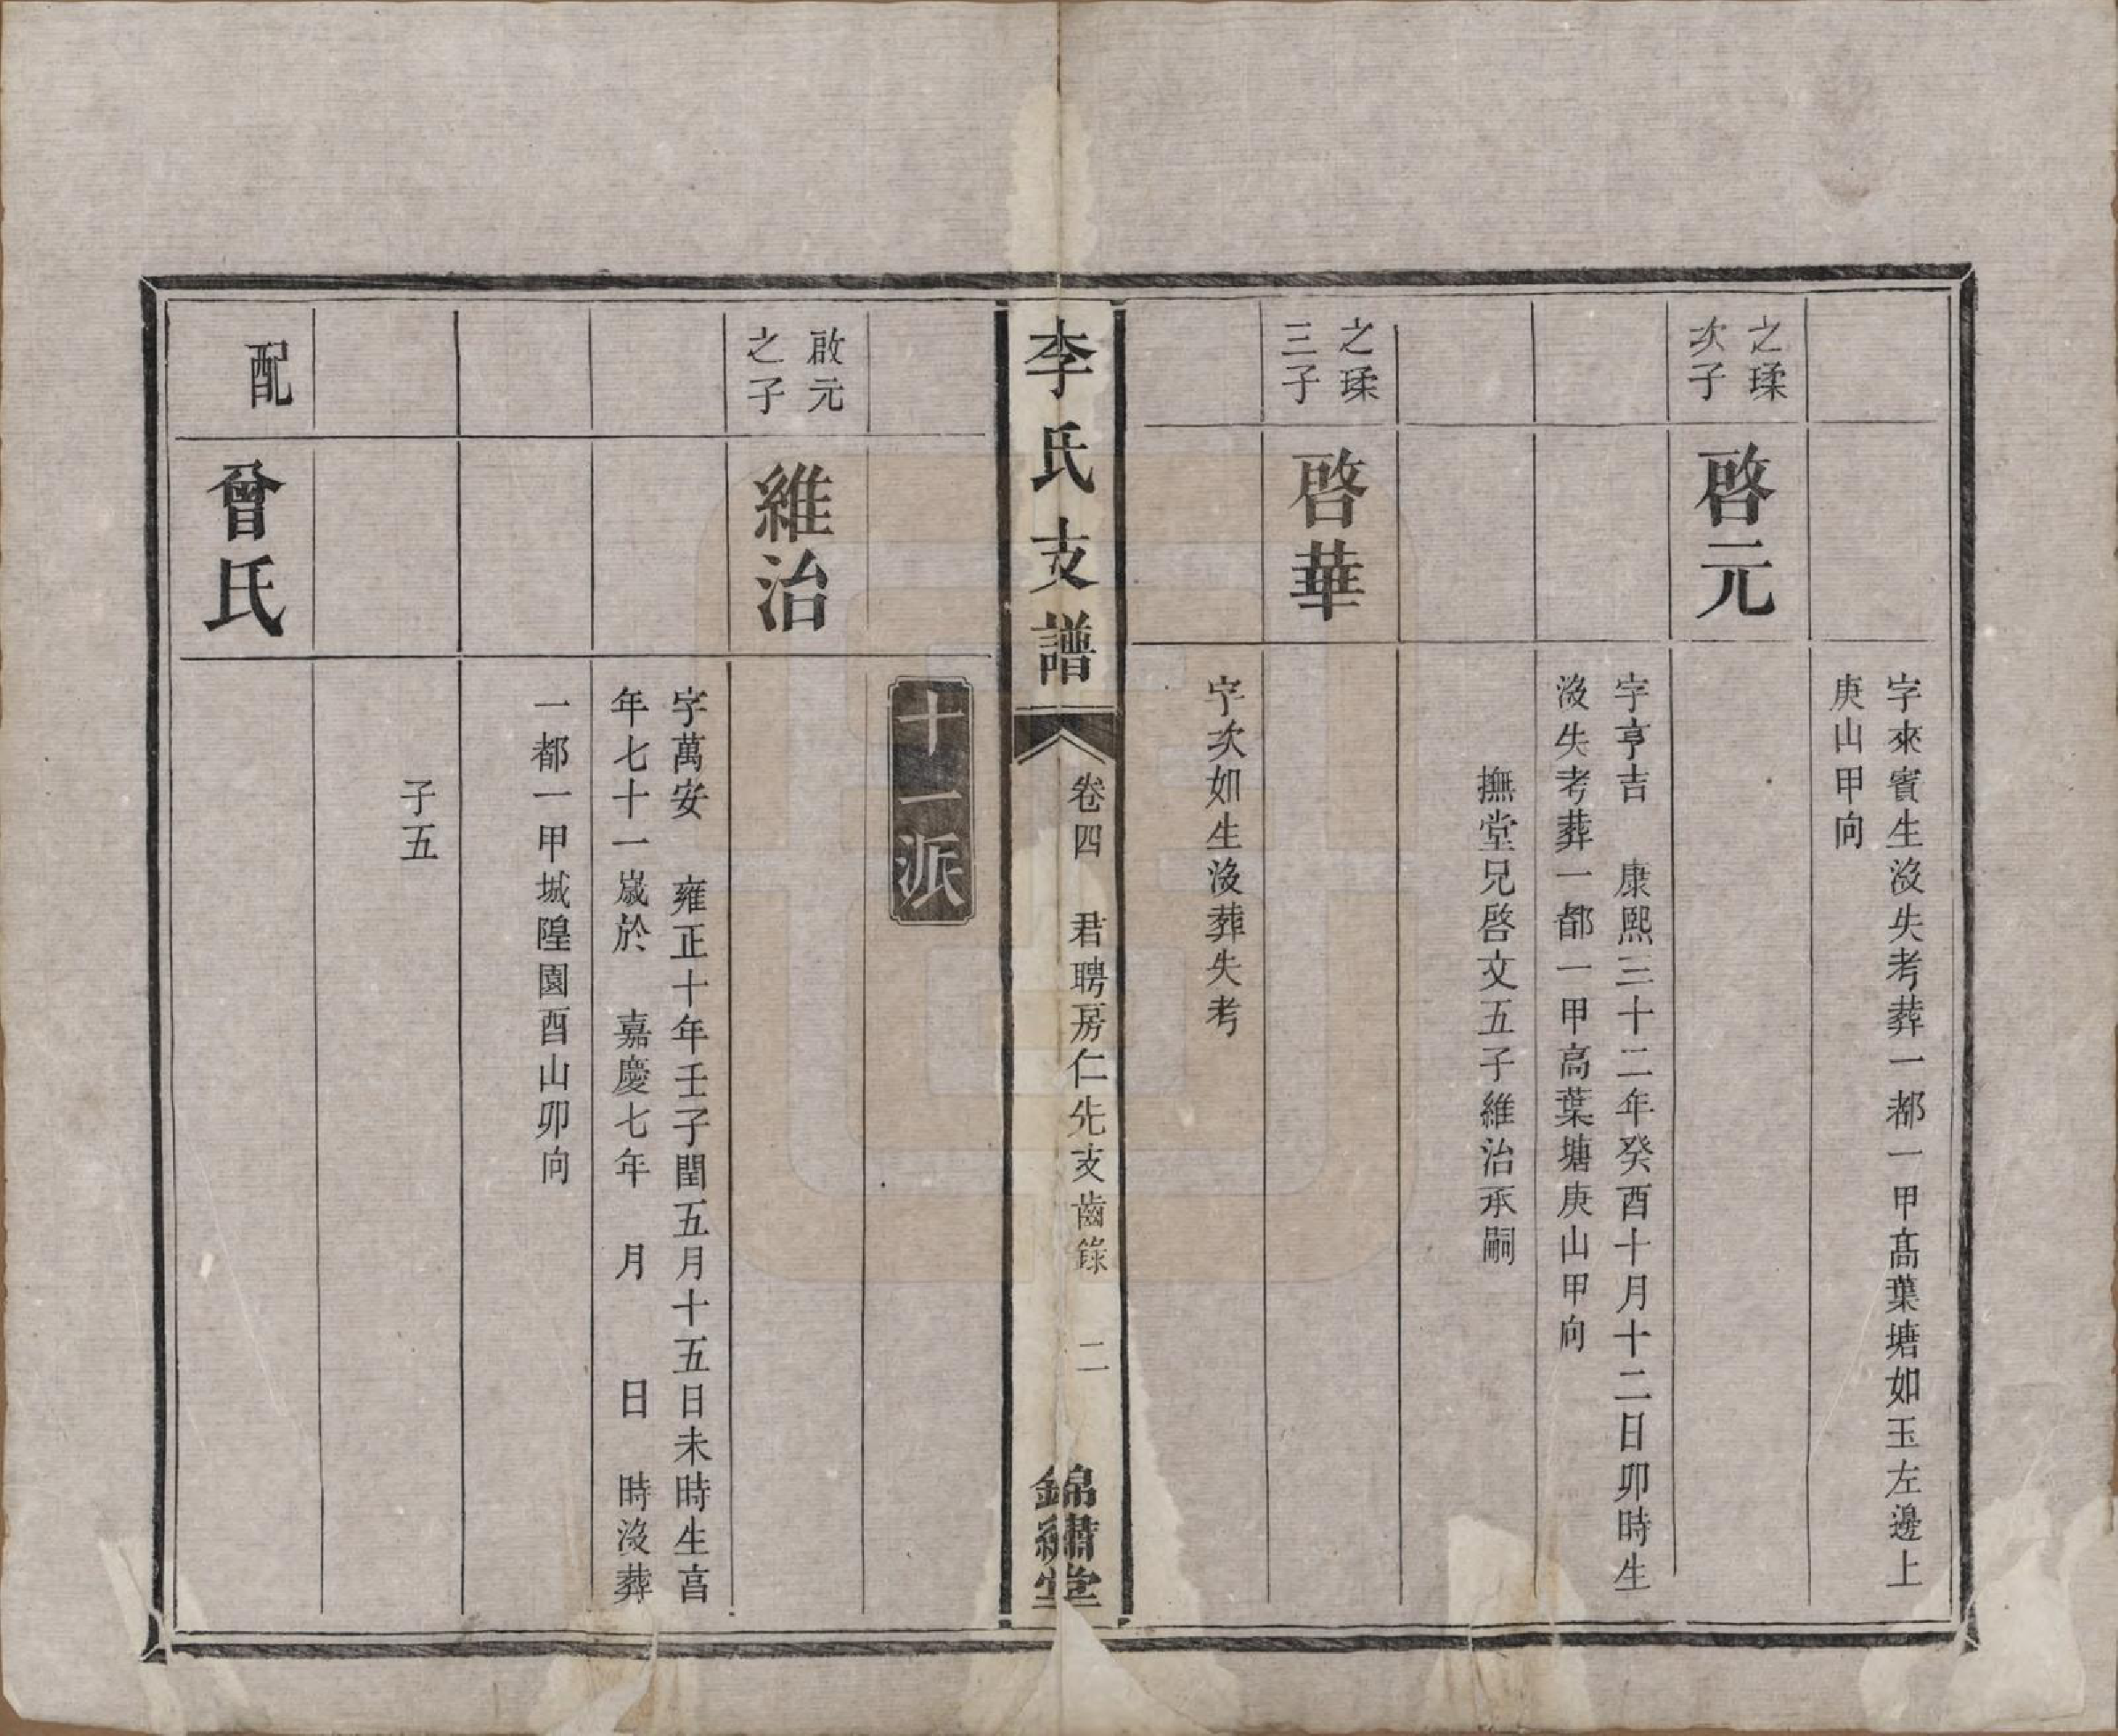 字來賓生沒失考葬一都一甲高葉塘如玉左邊上
庚山甲向
之瑈
次子
啓元
字亨吉　康熙三十二年癸酉十月十二日卯時生
沒失考葬一都一甲高葉塘庚山甲向
撫堂兄啓文五子維治承嗣
之瑈
三子
啓華
字次如生沒葬失考
李氏支譜
卷四　君聘房仁先支齒錄　二
錦繡堂
十一派
啟元
之子
維治
字萬安　雍正十年壬子閏五月十五日未時生享
年七十一歲於　嘉慶七年　月　日　時沒葬
一都一甲城隍園酉山卯向
子五
配
曾氏